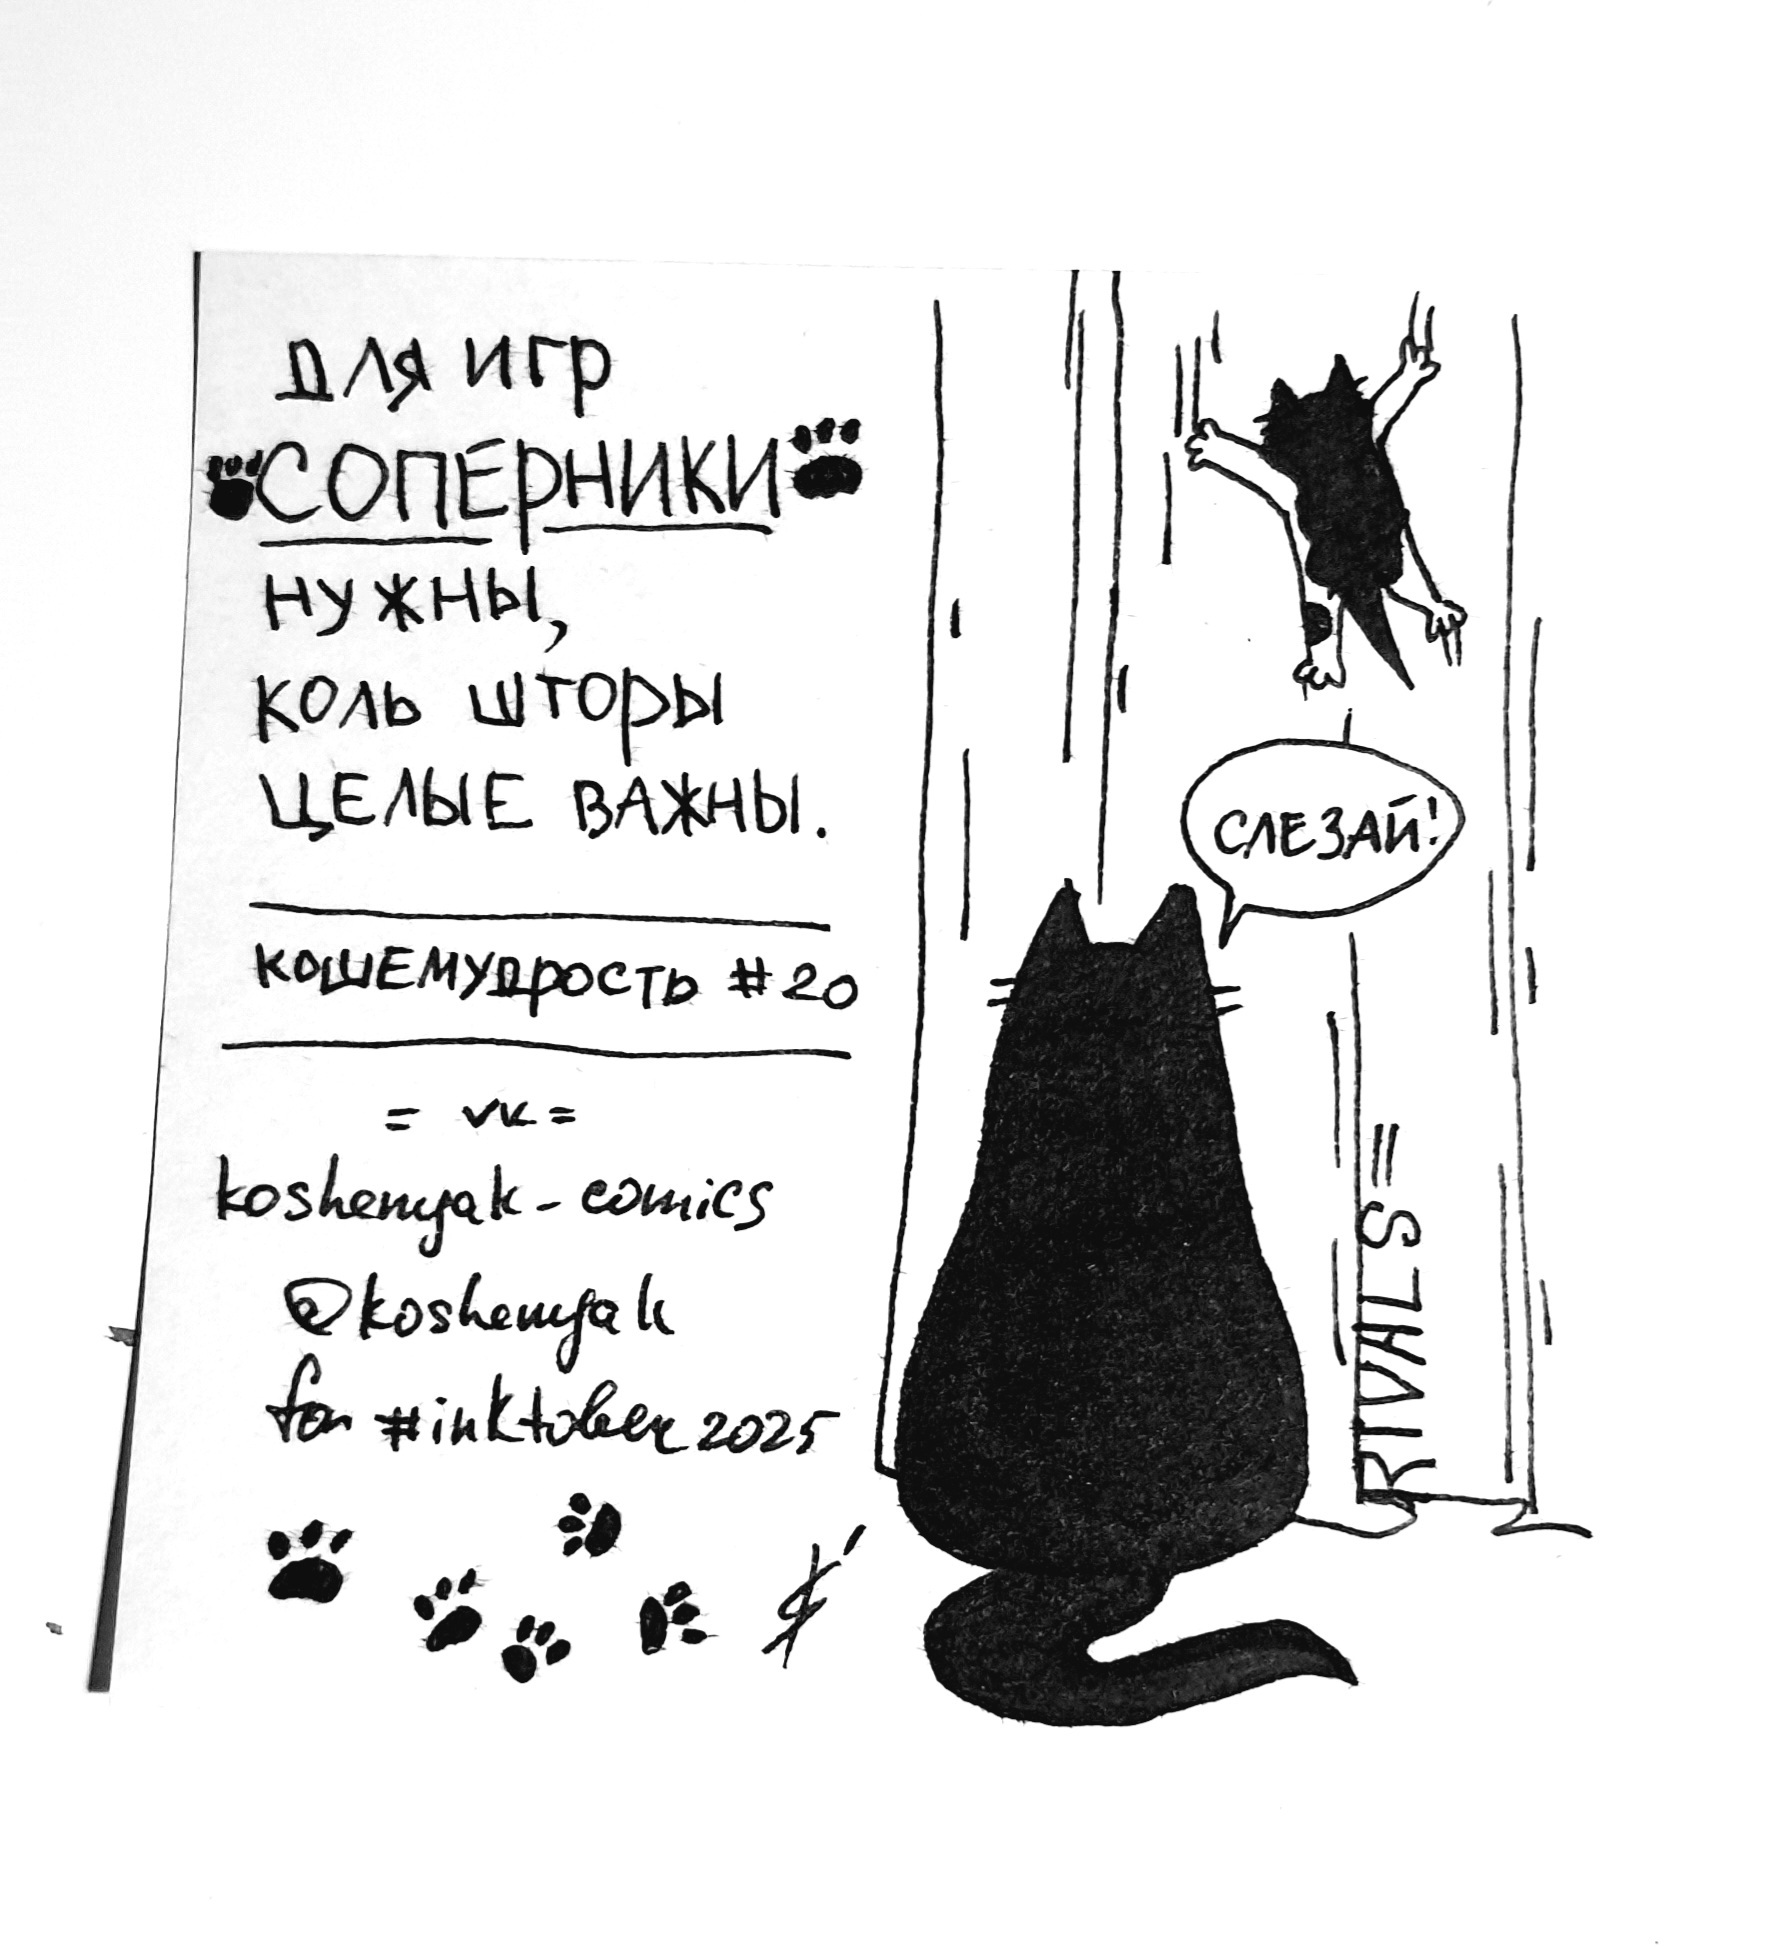 для игр
СОПЕРНИКИ
нужны,
коль шторы
ЦЕЛЫЕ ВАЖНЫ.
КОШЕМУДРОСТЬ #20
= vk =
koshenyak-comics
@koshenyak
for #inktober2025
СЛЕЗАЙ!
RIVALS=